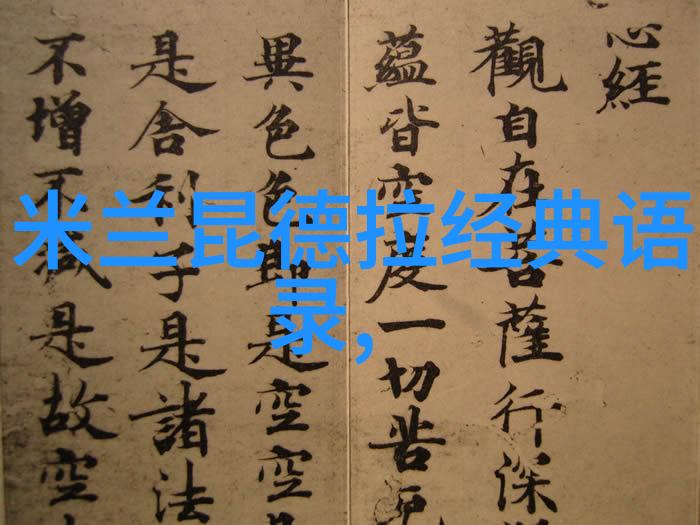 米兰昆德拉经典语
录,
心經
觀自在菩薩行深
蘊皆空度一切苦厄
異色色即是空空
是舍利子是諸法
不增不減是故空